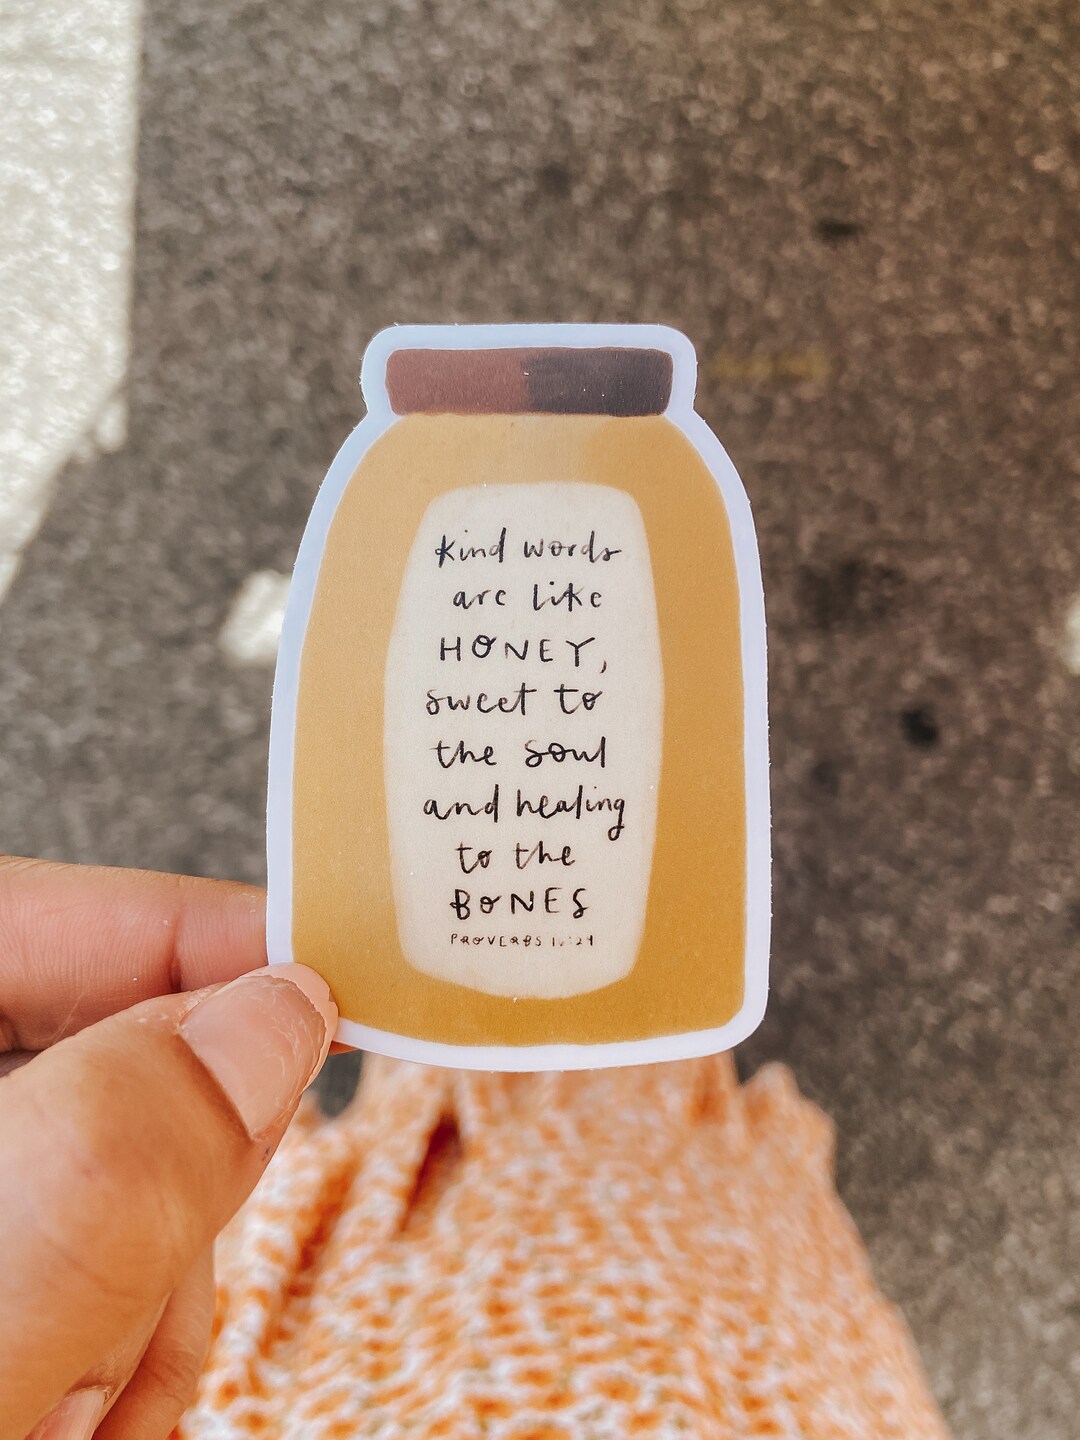 kind words
are like
HONEY,
sweet to
the soul
and healing
to the
BONES
PROVERBS